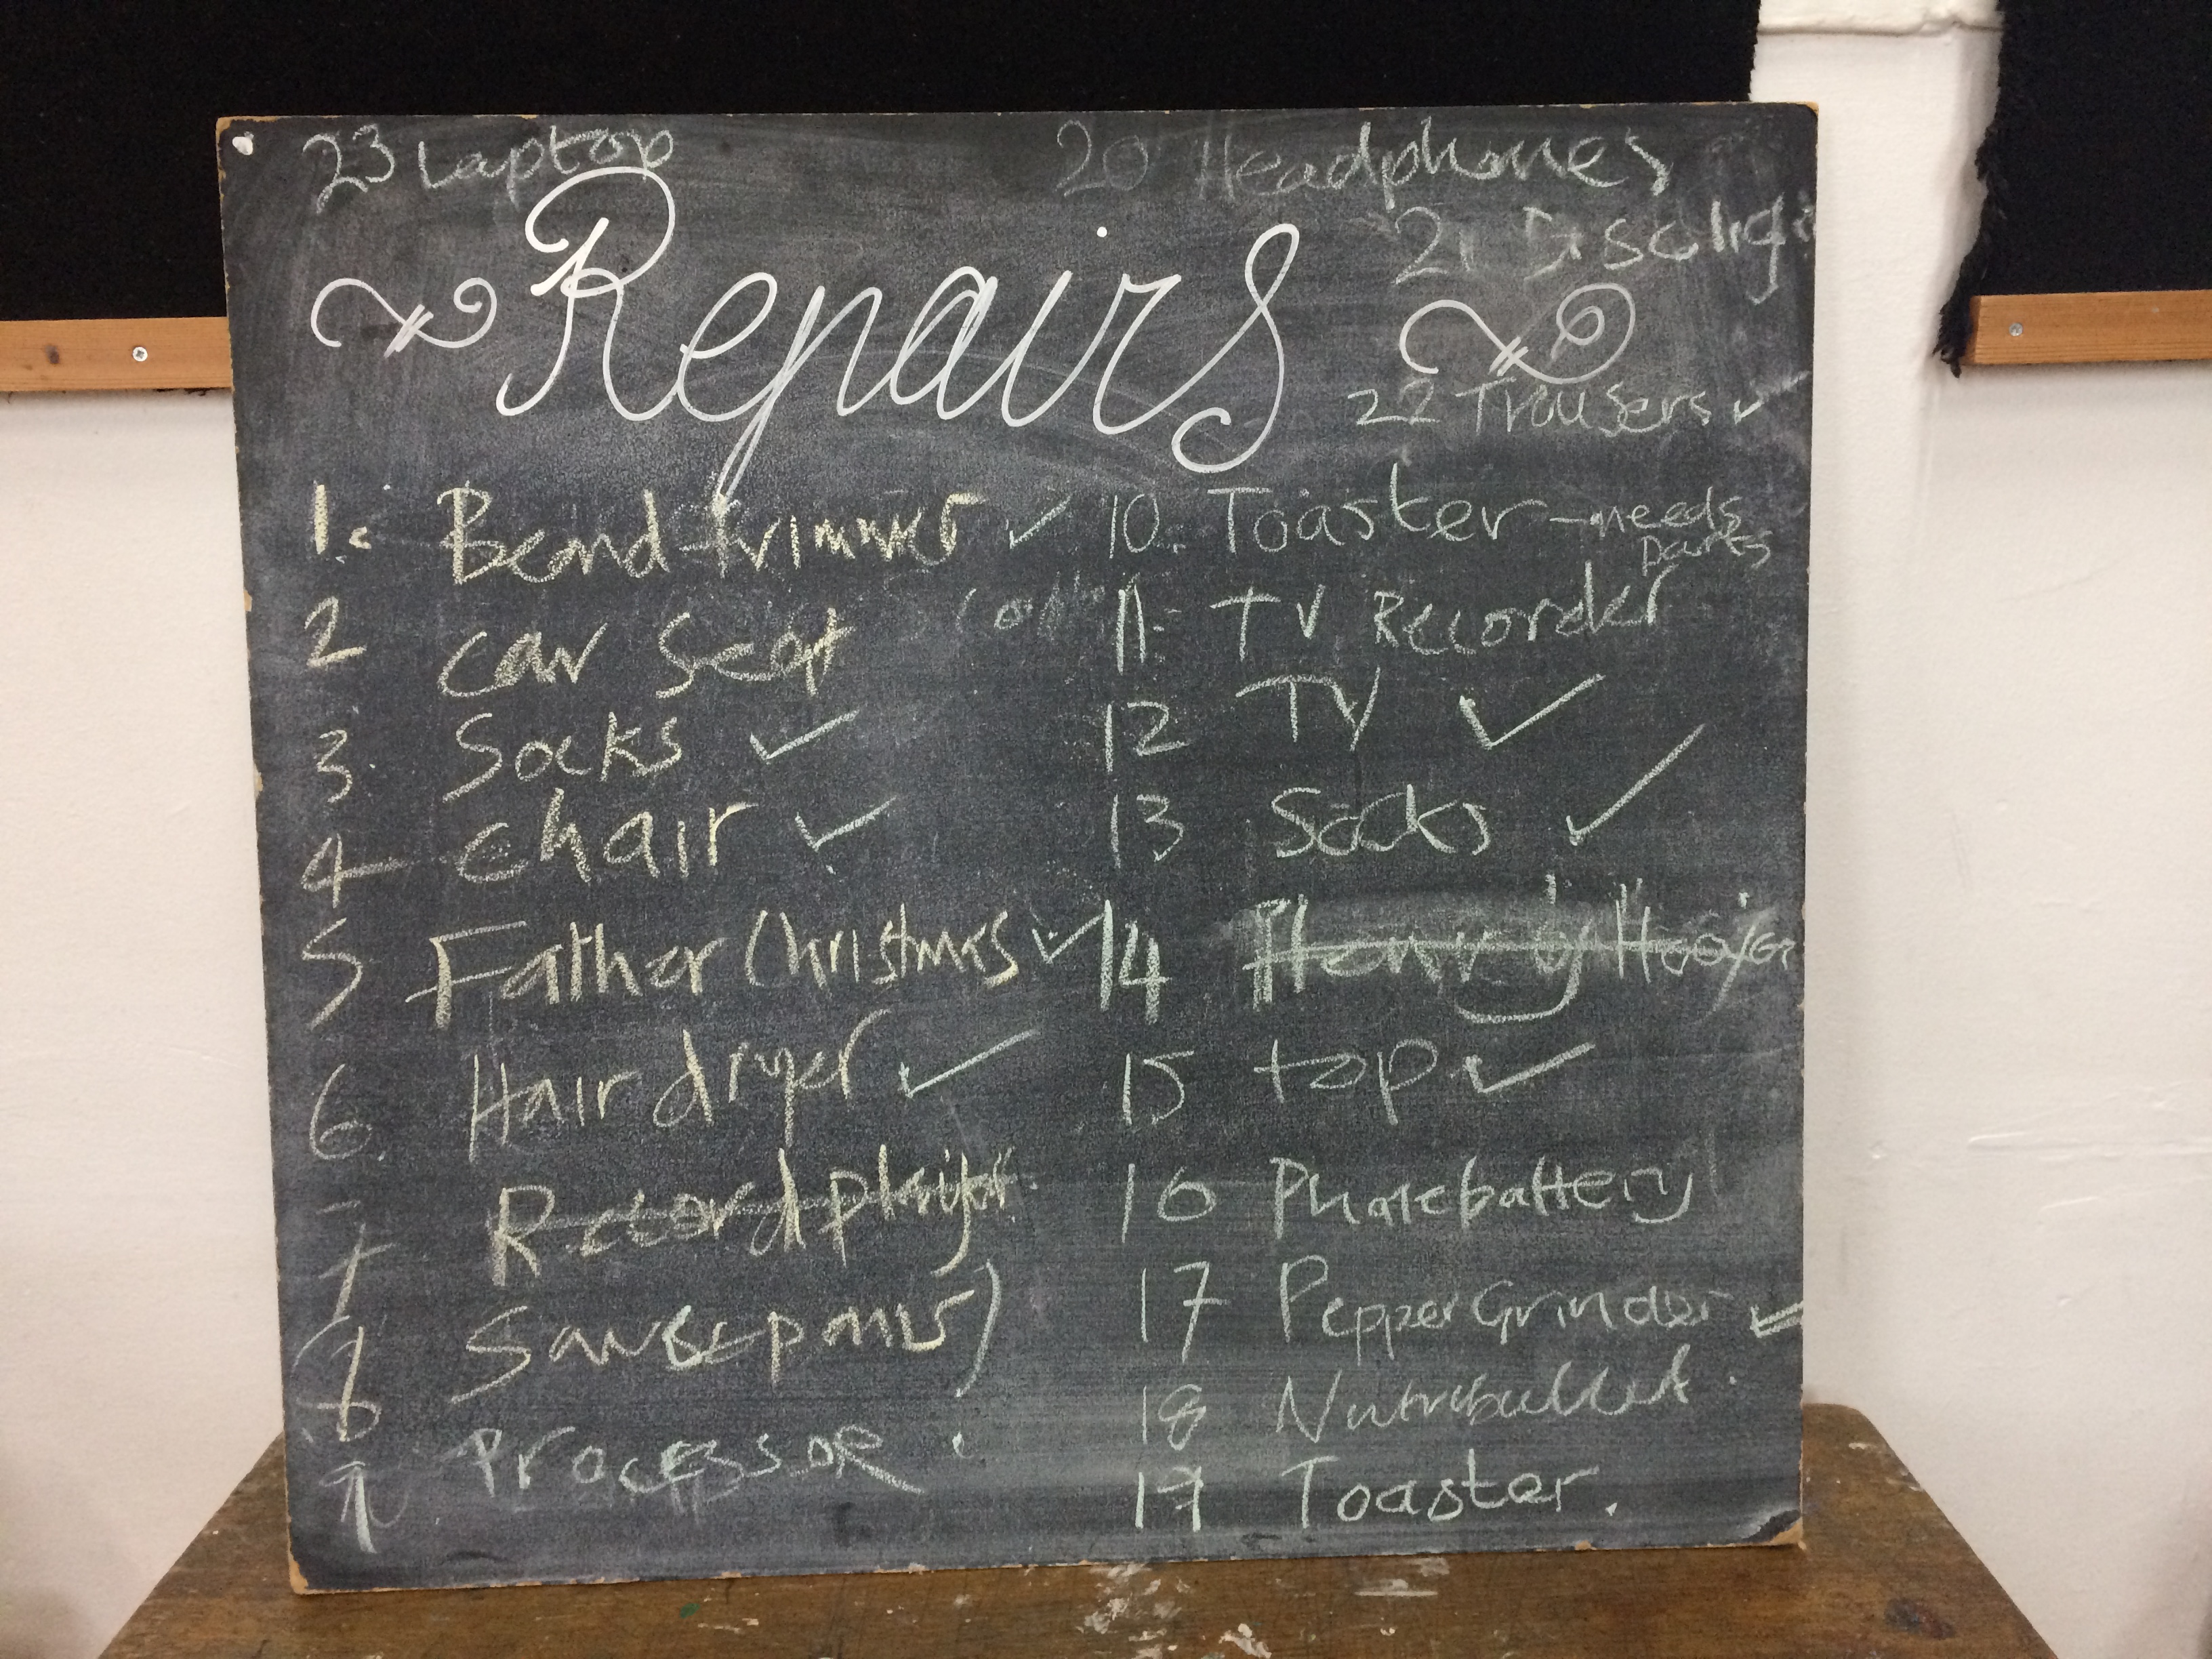 23 Laptop
20 Headphones
21 Disco ligh
Repairs
22 Trousers ✓
1. Beard trimmer ✓
2 Car Seat
3. Socks ✓
4 chair ✓
5 Father Christmas ✓
6. Hair dryer ✓
7 Record player
8 Saucepans)
9 Processor
10. Toaster - needs
parts
11. TV Recorder
12 TV ✓
13 Socks ✓
14 Henry Hoover
15 top ✓
16 Phone battery
17 Pepper Grinder ✓
18 Nutribullet.
19 Toaster.